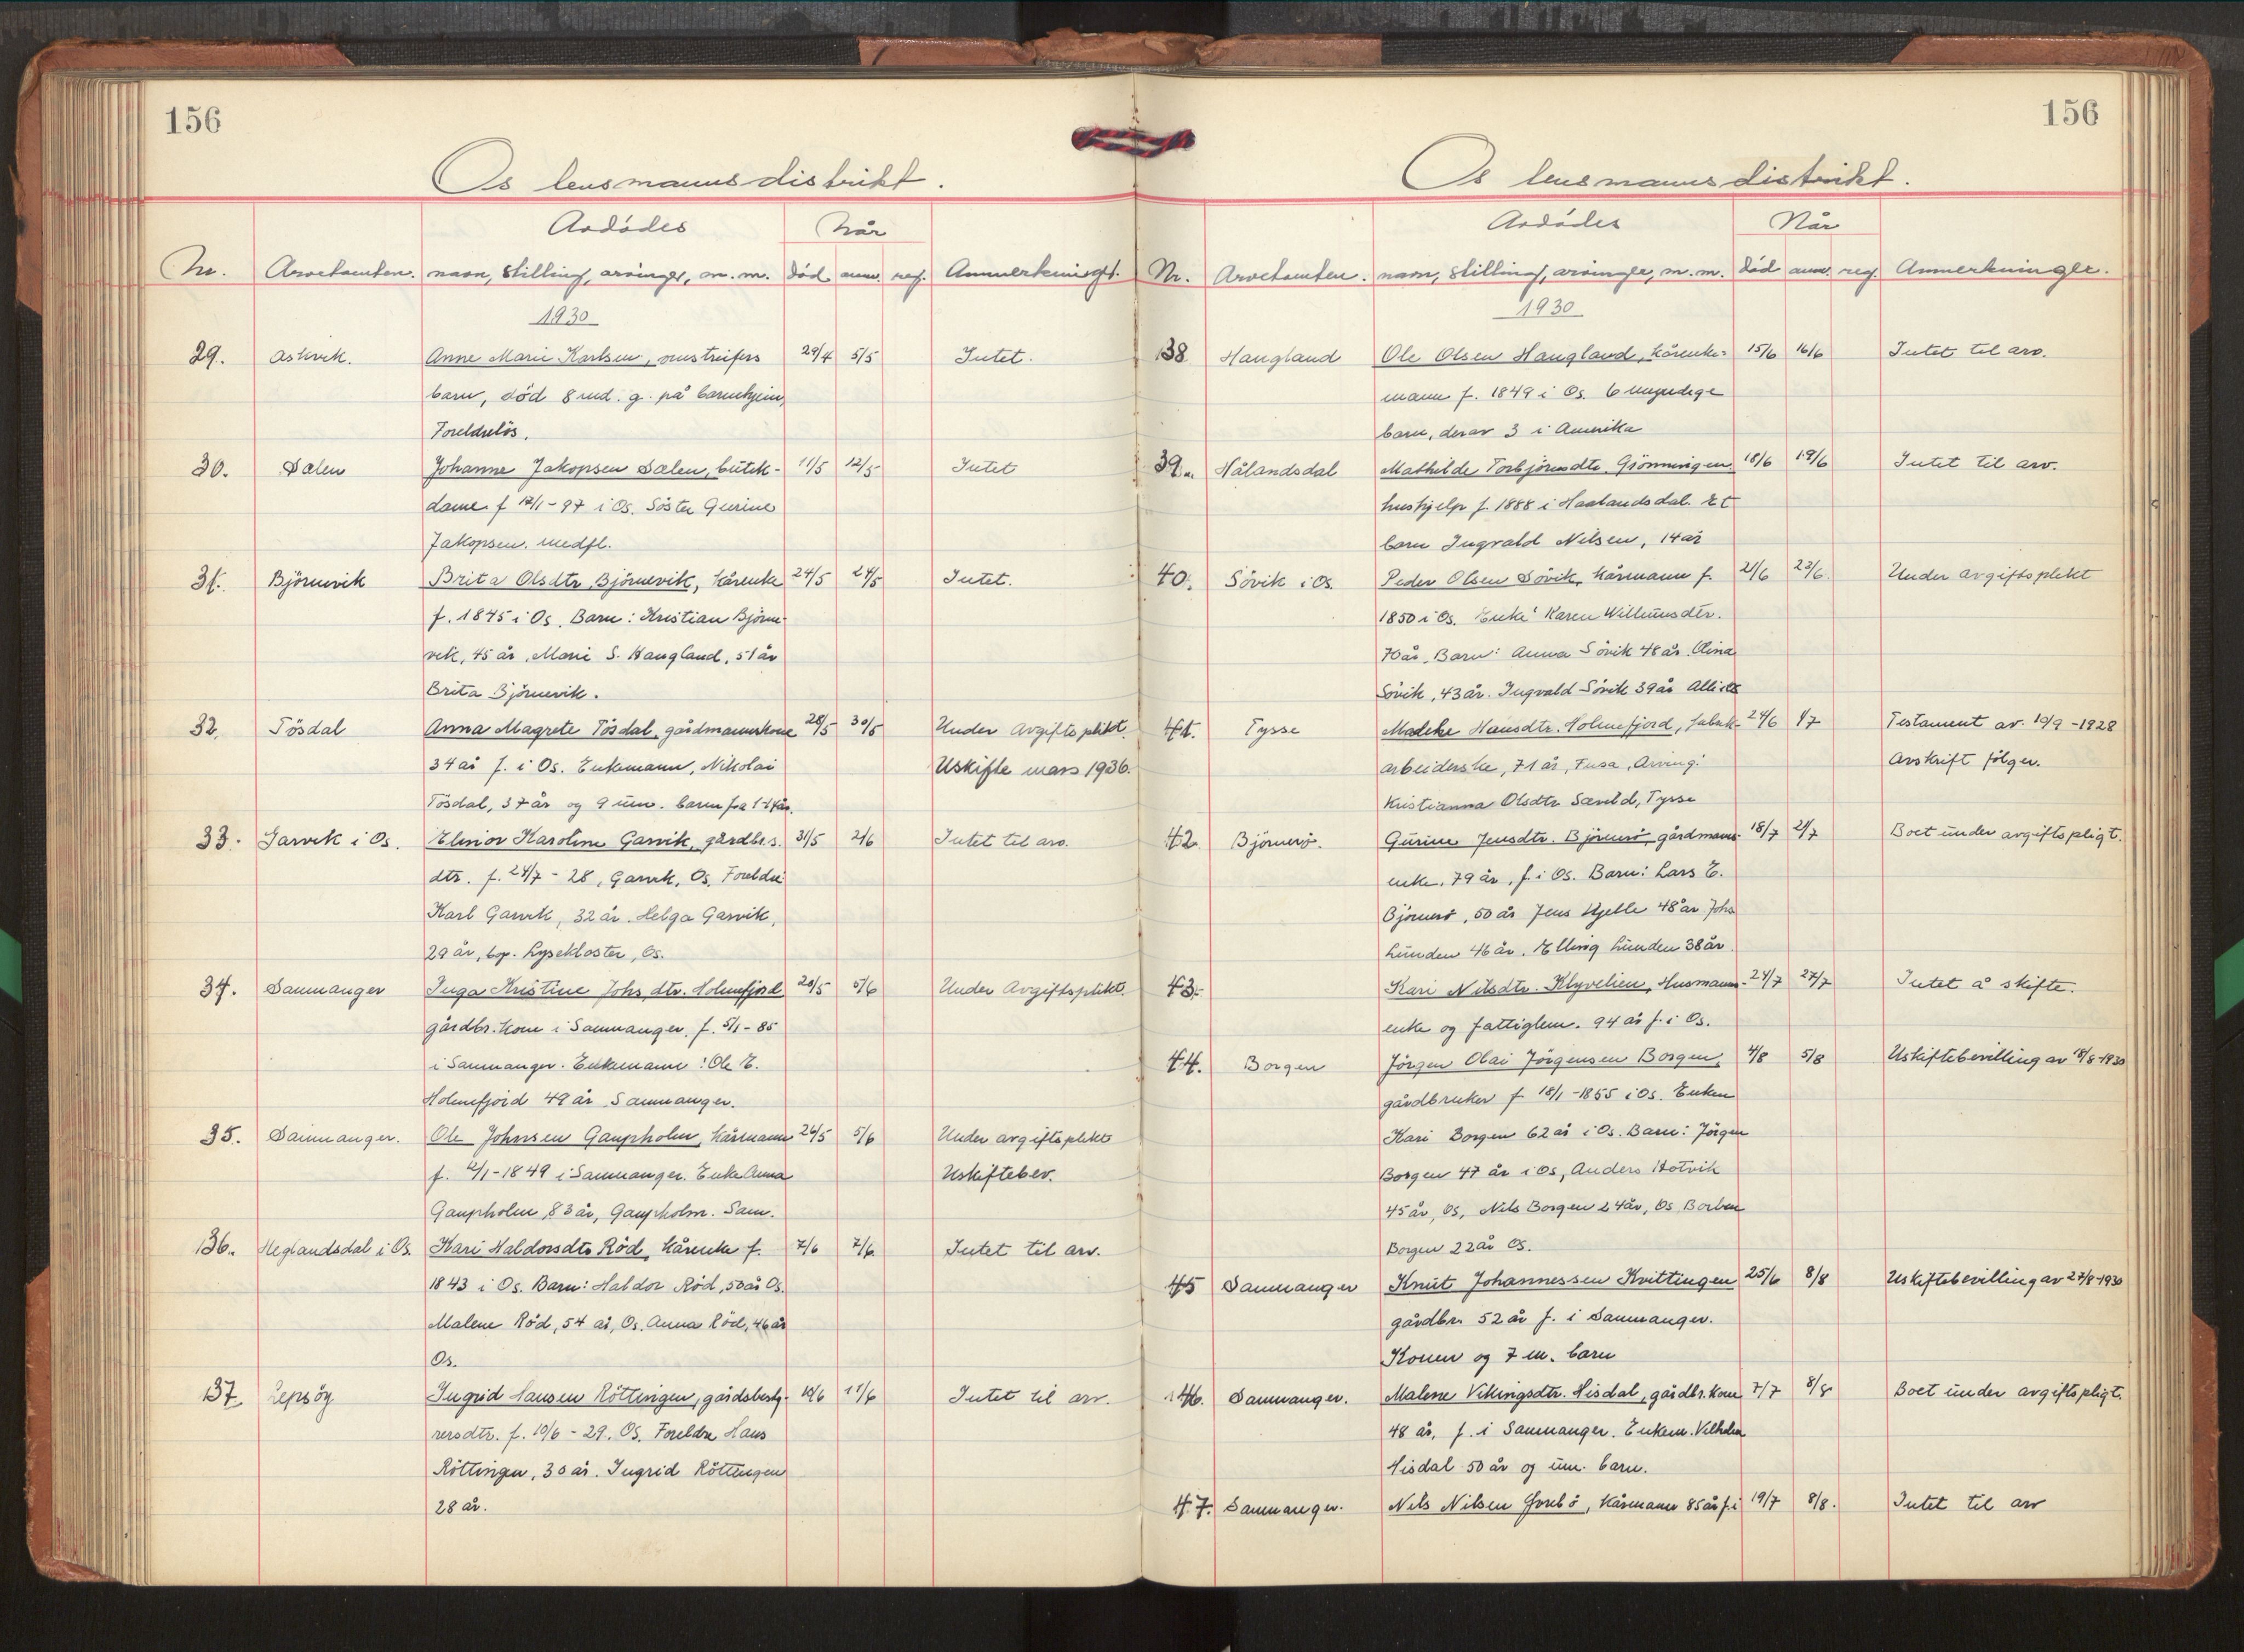 156
Os lensmannsdistrikt.
Avdödes
Når
Nr. Arvetomten. navn, stilling, arvinger, m. m. död anm. reg. Anmerkninger.
1930
29. Askvik. Anne Marie Karlsen, omstreifers 29/4 5/5 Intet.
barn, död 8 md. g. på barnehjem,
Foreldrelös.
30. Dalen Johanne Jakopsen Dalen, butik- 11/5 12/5 Intet
dame f 12/1-97 i Os. Söster Gurine
Jakopsen. medfl.
31. Björnevik Brita Olsdtr. Björnevik, kårenke 24/5 24/5 Intet.
f. 1845 i Os. Barn: Kristian Björne-
vik, 45 år, Marie S. Haugland, 51 år
Brita Björnevik.
32. Tösdal Anna Magrete Tösdal, gårdmannskone 28/5 30/5 Under avgiftsplikt.
34 år f. i Os. Enkemann, Nikolai Uskifte mars 1936.
Tösdal, 37 år og 9 um. barn fra 1-14 år.
33. Garvik i Os. Elinor Karoline Garvik, gårdbr.s. 31/5 2/6 Intet til arv.
dtr. f. 24/7-28, Garvik, Os, Foreldre
Karl Garvik, 32 år. Helga Garvik,
29 år, bop. Lysekloster, Os.
34. Samnanger Inga Kristine Johs.dtr. Holmefjord 20/5 5/6 Under Avgiftsplikt.
gårdbr. kone i Samnanger. f. 5/1-85
i Samnanger. Enkemann: Ole E.
Holmefjord 49 år Samnanger.
35. Samnanger. Ole Johnsen Gaupholm, kårmann 26/5 5/6 Under avgiftsplikt
f. 12/1-1849 i Samnanger. Enke Anna Uskiftebev.
Gaupholm, 83 år, Gaupholm. Sam.
136. Heglandsdal i Os. Kari Haldorsdtr Röd, kårenke f. 7/6 7/6 Intet til arv.
1843 i Os. Barn: Haldor Röd, 50 år Os.
Malene Röd, 54 år, Os. Anna Röd, 46 år
Os.
137 Lepsöy Ingrid Hansen Röttingen, gårdsbesty- 10/6 11/6 Intet til arv.
rersdtr. f. 10/6-29. Os. Foreldre Hans
Röttingen, 30 år. Ingrid Röttingen
28 år.
156
Os lensmannsdistrikt.
Avdödes
Når
Nr. Arvetomten. navn, stilling, arvinger, m. m. död anm. reg. Anmerkninger.
1930
138 Haugland Ole Olsen Haugland, kårenke- 15/6 16/6 Intet til arv.
mann f. 1849 i Os. 6 myndige
barn, derav 3 i Amerika
39. Hålandsdal Mathilde Torbjörnsdtr. Grönningen 18/6 19/6 Intet til arv.
hushjelp f. 1888 i Haalandsdal. Et
barn Ingvald Nilsen, 14 år
40. Sövik i Os. Peder Olsen Sövik, kårmann f. 21/6 23/6. Under avgiftsplikt
1850 i Os. Enke: Karen Willumsdtr.
70 år. Barn: Anna Sövik 48 år. Olina
Sövik, 43 år. Ingvald Sövik 39 år Alle i Os
41. Tysse Madeke Hansdtr. Holmefjord, fabrik- 24/6 1/7 Testament av 10/9-1928
arbeiderske, 71 år, Fusa, Arving: Avskrift fölger.
Kristianna Olsdtr. Sævild, Tysse
42 Björnerö. Gurine Jensdtr. Björnerö, gårdmanns- 18/7 21/7 Boet under avgiftspligt.
enke, 79 år, f. i Os. Barn: Lars E.
Björnerö, 50 år Jens Hjelle 48 år Johs
Lunden 46 år. Elling Lunden 38 år.
43. Kari Nilsdtr. Klyvelien, Husmanns- 24/7 27/7 Intet å skifte.
enke og fattiglem. 94 år f. i Os.
44. Borgen Jörgen Olai Jörgensen Borgen, 4/8 5/8 Uskiftebevilling av 18/8-1930
gårdbruker f 18/1-1855 i Os. Enken
Kari Borgen 62 år i Os. Barn: Jörgen
Borgen 47 år i Os, Anders Hotvik
45 år, Os, Nils Borgen 24 år, Os
Borgen 22 år Os.
45 Samnanger Knut Johannessen Kvittingen 25/6 8/8 Uskiftebevilling av 27/8-1930
gårdbr. 52 år f. i Samnanger.
Konen og 7 m. barn
146. Samnanger. Malene Vikingsdtr. Hisdal, gårdbr. kone 7/7 8/8 Boet under avgiftspligt.
48 år, f. i Samnanger. Enkem. Vilhelm
Hisdal 50 år og um. barn.
47. Samnanger. Nils Nilsen , Kårmann 85 år f. i 19/7 8/8. Intet til arv